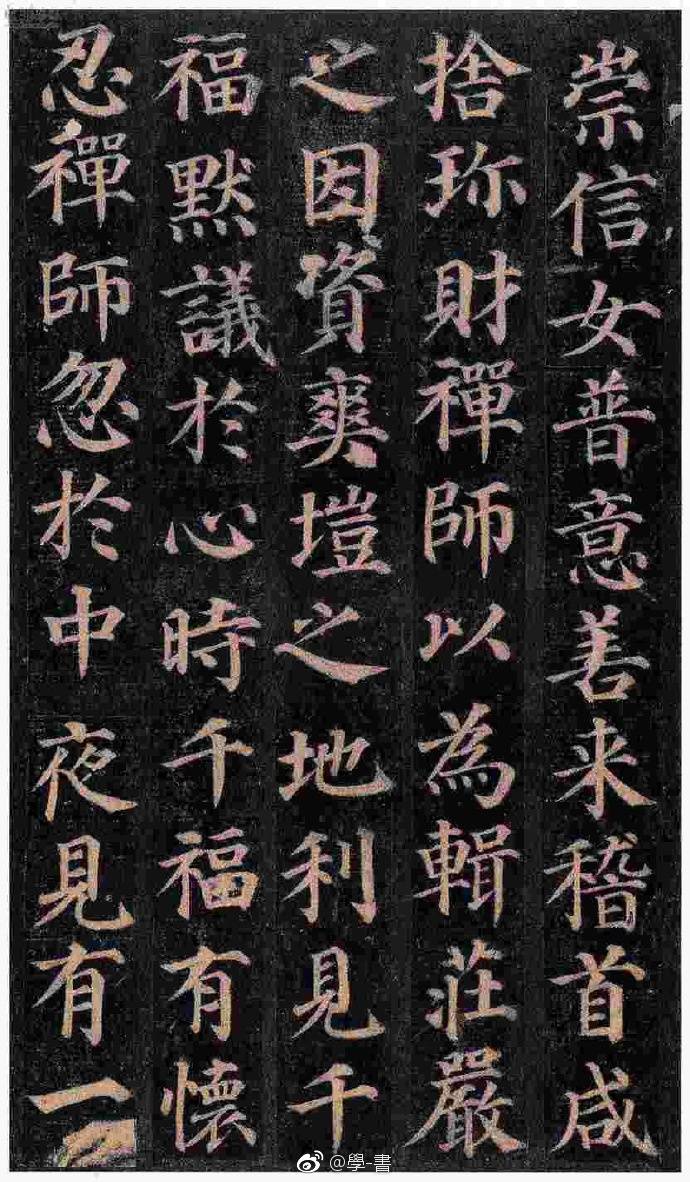 崇信女普意善来稽首咸
捨珎財禪師以為輯莊嚴
之因資爽塏之地利見千
福默議於心時千福有懷
忍禪師忽於中夜見有一
@學-書